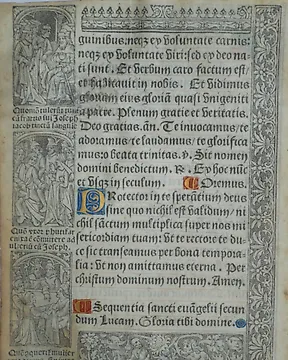 guinibus: neqz ey voluntate carnis:
neqz ey voluntate viri: sed ey deo na-
ti sunt. Et verbum caro factum est/
et habitauit in nobis. Et vidimus
gloriam eius gloriā quasi vnigeniti
a patre. Plenum gratie et veritatis.
Deo gracias. añ. Te inuocamus/ te
adoramus/ te laudamus/ te glorifica
mus: o beata trinitas. ℣. Sit nomen
domini benedictum. ℟. Ey hoc nūc
et vsqz in seculum. Oremus.
Protector in te sperātium deus
sine quo nichil est validum/ ni
chil sāctum multiplica super nos mi
sericordiam tuam: vt te rectore te du-
ce sic transeamus per bona tempora-
lia: vt non amittamus eterna. Per
christum dominum nostrum. Amen.
Sequentia sancti euāgelii secun
dum Lucam. Gloria tibi domine.
Quomō tulerūt tuni
cā fratris sui Joseph
Joseph.